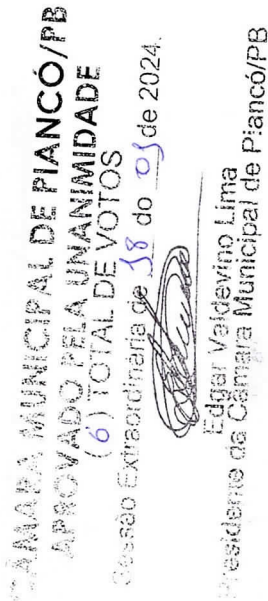 CÂMARA MUNICIPAL DE PIANCÓ/PB
APROVADO PELA UNANIMIDADE
(6) TOTAL DE VOTOS
Sessão Extraordinária de 18 do 09 de 2024.
Edgar Valdevino Lima
Presidente da Câmara Municipal de Piancó/PB